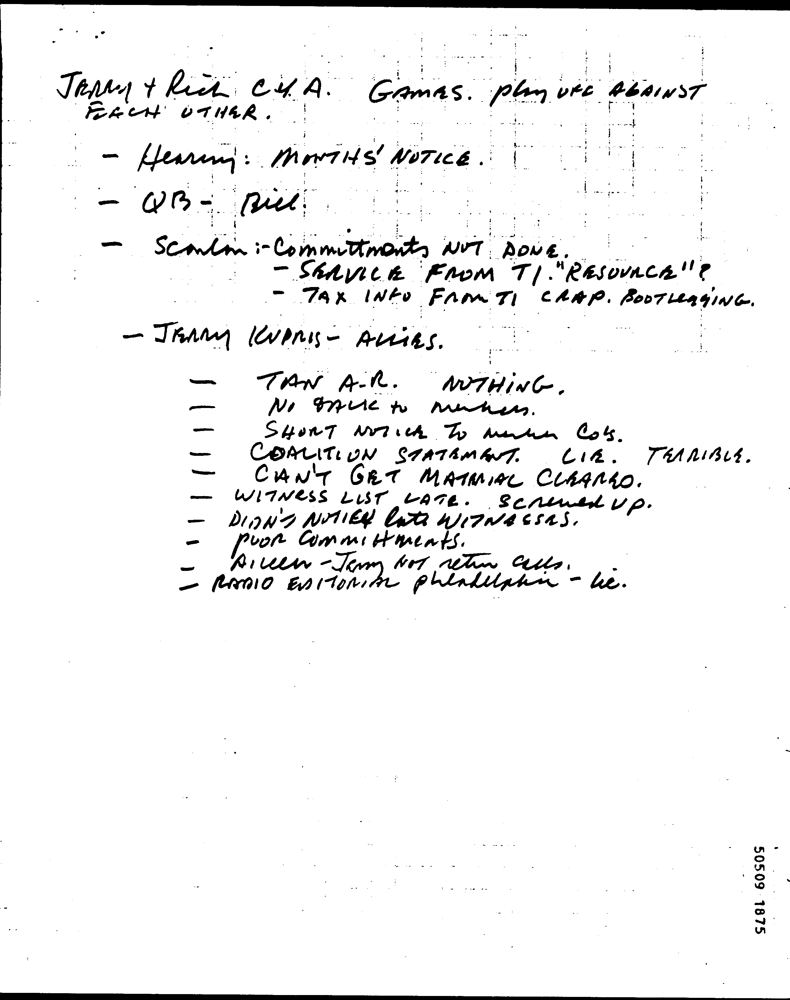 JERRY + Rich C.Y.A. GAMES. play OFF AGAINST
EACH OTHER.
- Hearing: MONTHS' NOTICE.
- QB - Bill.
- Scanlon :- Committments NOT DONE.
- SERVICE FROM TI. "RESOURCE"?
- TAX INFO FROM TI CRAP. BOOTLEGGING.
- JERRY KUPRIS - ALLIES.
- TAN A.R. NOTHING.
- No TALK to members.
- SHORT NOTICE To member Co's.
- COALITION STATEMENT. LIE. TERRIBLE.
- CAN'T GET MATRIAL CLEARED.
- WITNESS LIST LATE. Screwed UP.
- DIDN'T NOTIFY late WITNESSES.
- POOR Committments.
- Aileen - Jerry NOT return calls.
- RADIO EDITORIAL philadelphia - lie.
50509 1875